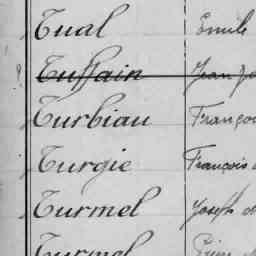 Tual Emile
Tuffain Jean
Turbiau Franço
Turgie François
Turmel Joseph
Turmel